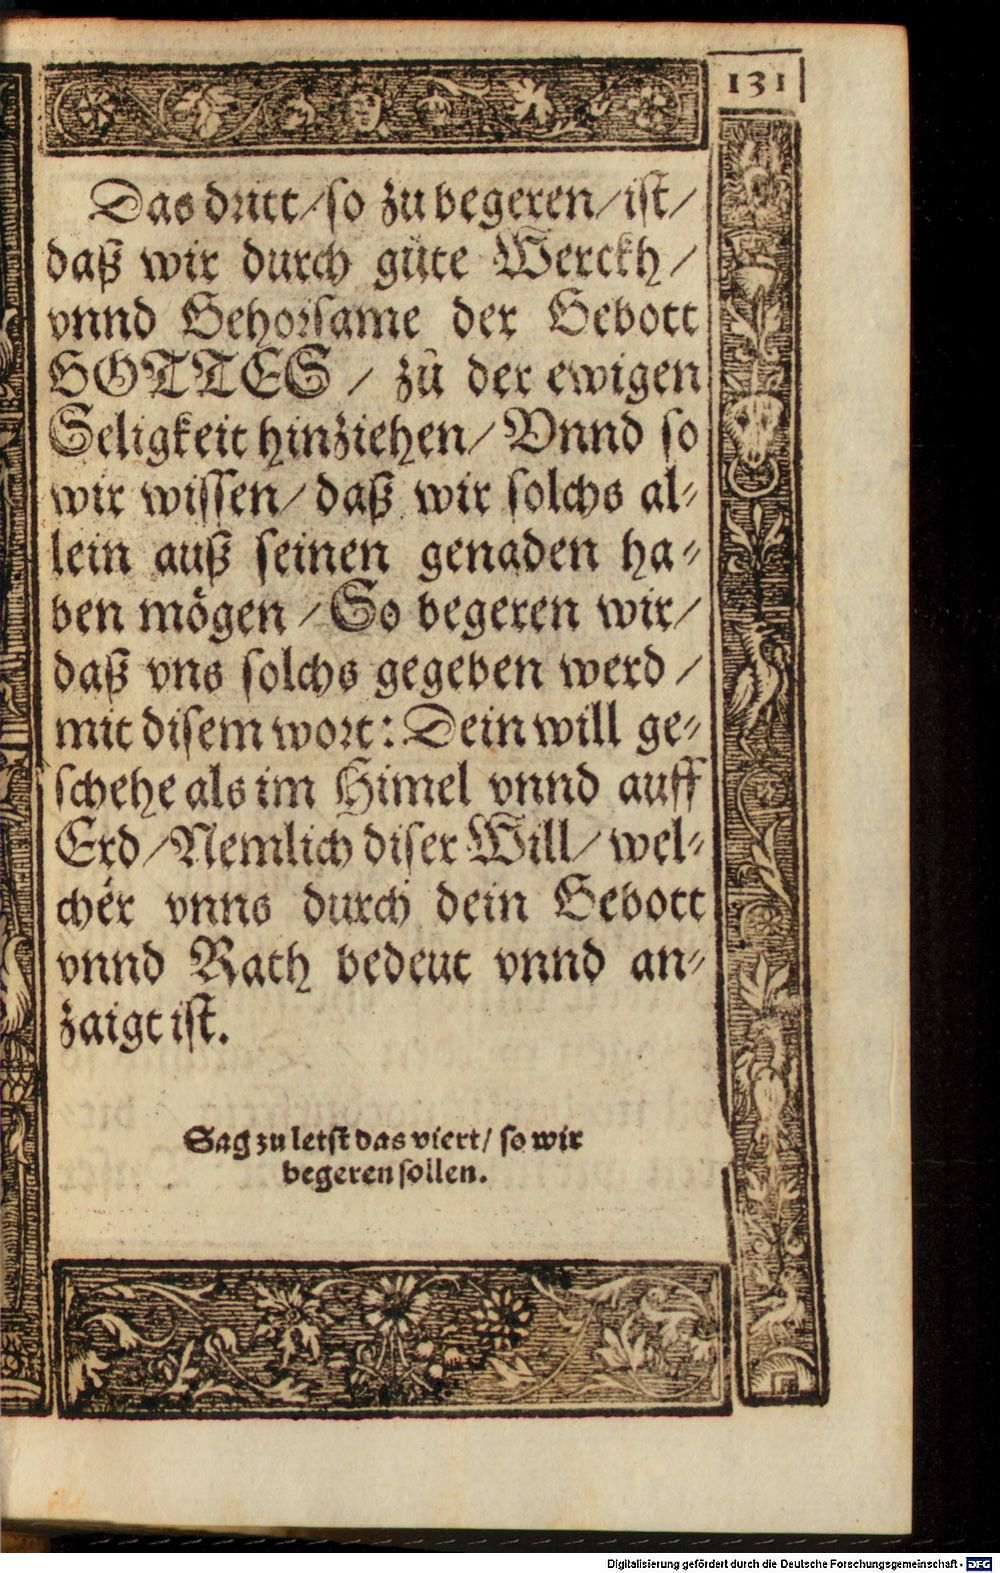 131
Das dritt/ so zu begeren/ ist/
daß wir durch guͤte Werckh/
vnnd Gehorsame der Gebott
GOTTES / zů der ewigen
Seligkeit hinziehen/ Vnnd so
wir wissen/ daß wir solchs al-
lein auß seinen genaden ha-
ben mögen / So begeren wir/
daß vns solchs gegeben werd /
mit disem wort: Dein will ge-
schehe als im Himel vnnd auff
Erd / Nemlich diser Will/ wel-
cher vnns durch dein Gebott
vnnd Rath bedeut vnnd an-
zaigt ist.
Sag zu letst das viert/ so wir
begeren sollen.
Digitalisierung gefördert durch die Deutsche Forschungsgemeinschaft - DFG